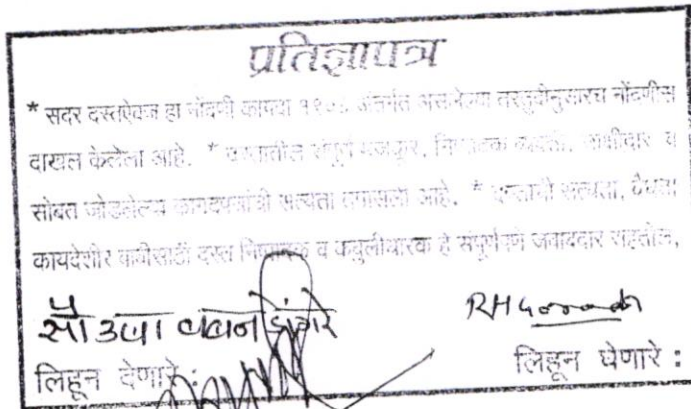 प्रतिज्ञापत्र
* सदर दस्तऐवज हा नोंदणी कायदा १९०८ अंतर्गत असलेल्या तरतुदीनुसारच नोंदणीस
दाखल केलेला आहे. * दस्तातील संपूर्ण मजकूर, निष्पादक व्यक्ती, साक्षीदार व
सोबत जोडलेल्या कागदपत्रांची सत्यता तपासली आहे. * दस्ताची सत्यता, वैधता
कायदेशीर बाबीसाठी दस्त निष्पादक व कबुलीधारक हे संपूर्णपणे जबाबदार राहतील,
सौ उषा
लिहून देणारे :
लिहून घेणारे :